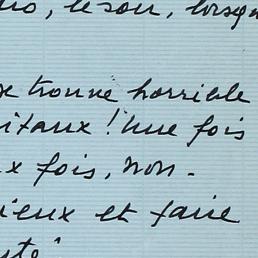 le soir, lorsqu
trouve horrible
itaux ! Une fois
x fois, non.
ieux et faire